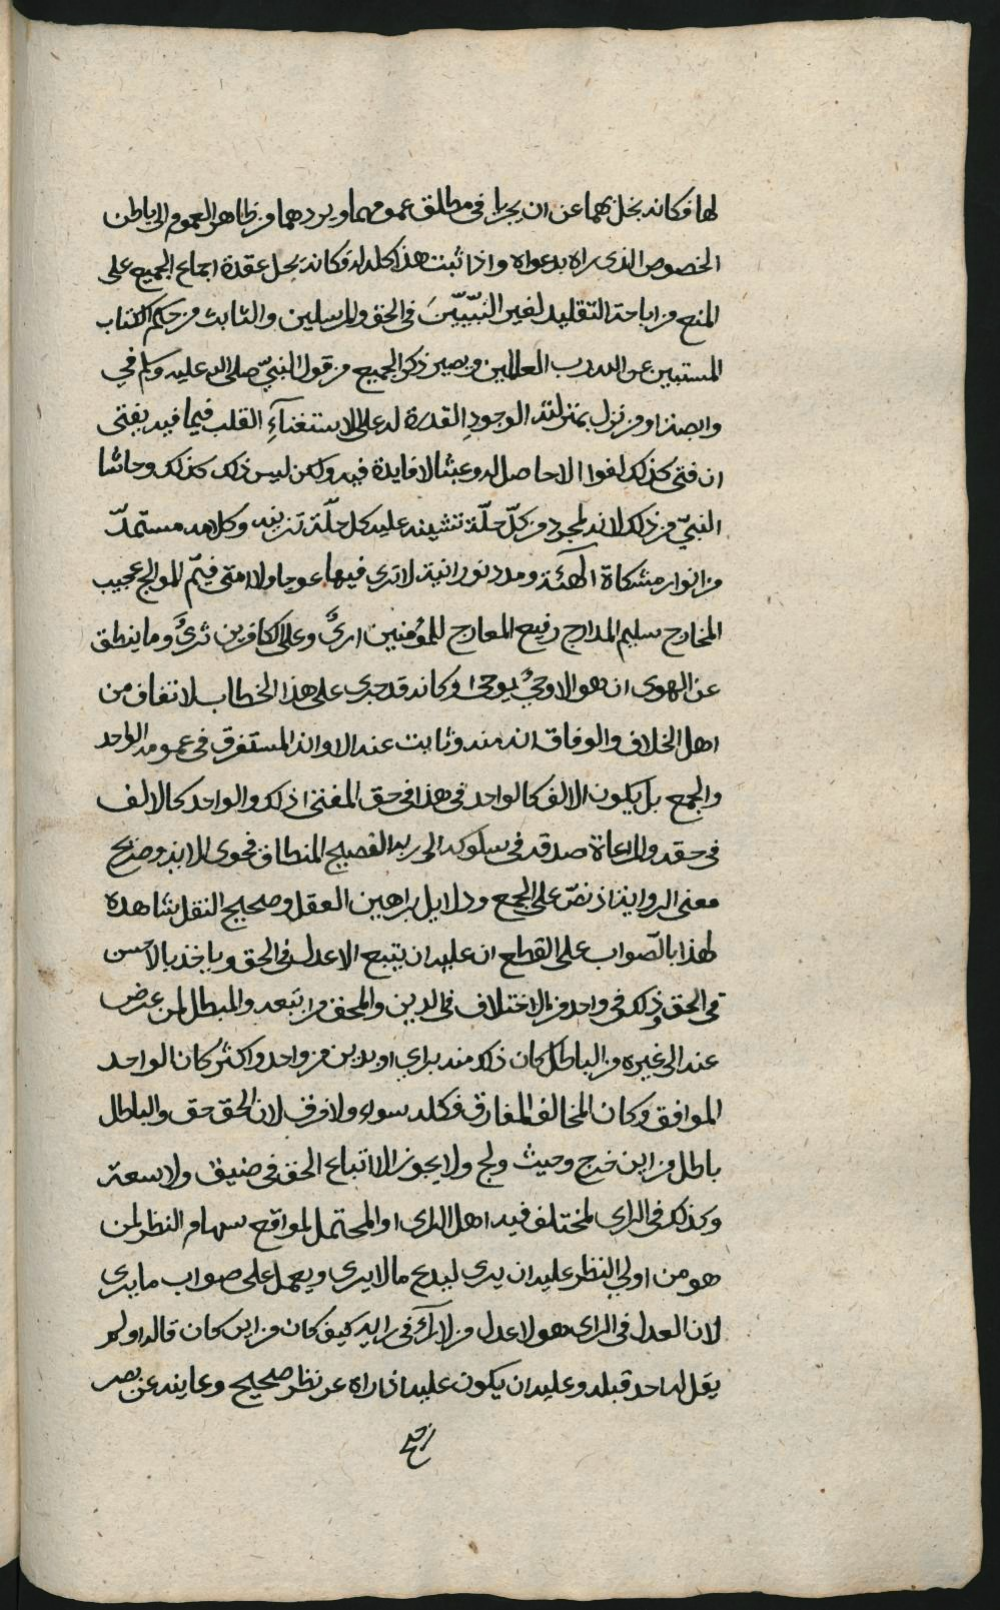 لها فكانه بخل بهما عن ان يجريا في مطلق عمومهما ويردهما من ظاهر العموم الى باطن
الخصوص الذي راه بدعواه واذا ثبت هذا كله له فكانه يحل عقدة اجماع الجميع على
المنع من اباحة التقليد لغير النبيّيّنَ في الحق والمرسلين والثابت من حكم الكتاب
المستبين عن الله رب العالمين ويصير ذكر الجميع من قول النبيّ صلى الله عليه وسلم في
وابصة او من نزل بمنزلته الوجودِ القدرة له على الاستغناءِ القلب فيما فيه يفتى
ان فتى كذلك لغوا لا حاصل له وعبثا لا فايدة فيه ولكن ليس ذلك كذلك وحاشا
النبيّ من ذلك لانه لمجرد من كلّ حلّة تشينه عليه كل حلّة تزينه وكلامه مستمدّ
من انوار مشكاة الهيّة ومدد نورانية لا ترى فيها عوجا ولا امتى فيتم الموالج عجيب
المخارج سليم المدارج رفيع المعارج للمؤمنين اريٌ وعلى الكافرين شريٌ وما ينطق
عن الهوى ان هو الا وحيٌ يوحى وكانه قد جرى على هذا الخطاب لاتفاق من
اهل الخلاف والوفاق انه منه وثابت عنه الا وانه المستغرق في عمومه الواحد
والجمع بل يكون الالف كالواحد في هذا في حق المفتى اذ ذلك والواحد كالالف
في حقه والمراعاة صدقه في سلوكه الى ربه الفصيح المنطاق فحوى الاية وصريح
معنى الرواية اذ نصّ على الجمع ودلايل براهين العقل وصحيح النقل شاهدة
لهذا بالصّواب على القطع ان عليه ان يتبع الاعدل في الحق وياخذ بالاحسن
في الحق وذلك في واحد من الاختلاف في الدين والمحق من اتبعه والمبطل لمن عرض
عنه الى غيره من الباطل كان ذلك منه براي او بدين من واحد واكثر كان الواحد
الموافق وكان المخالف المفارق فكله سواء ولا فرق لان الحق حق والباطل
باطل من اين خرج وحيث ولج ولا يجوز الا اتباع الحق في ضيق ولا سعة
وكذلك في الراي المختلف فيه اهل الراى او المحتمل لمواقع سهام النظر لمن
هو من اولي النظر عليه ان يرى ليدع ما لا يرى ويعمل على صواب ما يرى
لان العدل في الراى هو لاعدل من الارآء في رايه كيف كان من اين كان قاله او لم
يقل له احد قبله وعليه ان يكون عليه اذا راه عن نظر صحيح وعاينه عن بصر